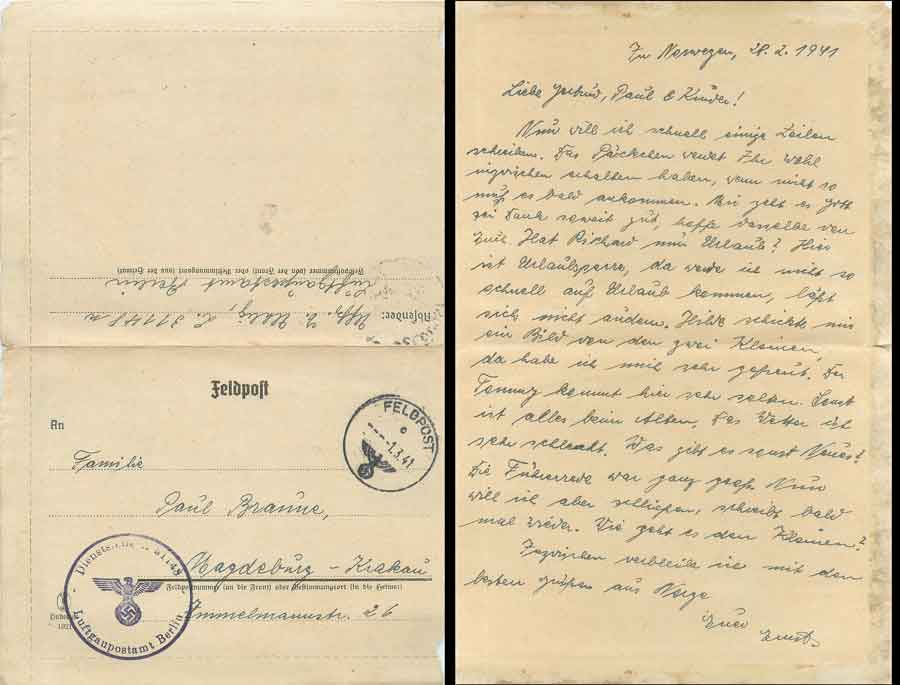 Absender: Uffz. E. Uhlig, L 31148
Luftgaupostamt Berlin
Feldpostnummer (von der Front) oder Bestimmungsort (aus der Heimat)
Feldpost
FELDPOST
1.3.41
An
Familie
Paul Braune,
Magdeburg - Krakau
Feldpostnummer (an die Front) oder Bestimmungsort (in die Heimat)
Immelmannstr. 26
Dienststelle L 31148
Luftgaupostamt Berlin
In Norwegen, 28.2.1941
Liebe Gertrud, Paul & Kinder!
Nun will ich schnell einige Zeilen
schreiben. Das Päckchen werdet Ihr wohl
inzwischen erhalten haben, wenn nicht so
muß es bald ankommen. Mir geht es Gott
sei Dank soweit gut, hoffe dasselbe von
Euch. Hat Richard nun Urlaub? Hier
ist Urlaubsperre, da werde ich nicht so
schnell auf Urlaub kommen, läßt
sich nicht ändern. Hilde schickte mir
ein Bild von den zwei Kleinen,
da habe ich mich sehr gefreut. Der
Tommy kommt hier sehr selten. Sonst
ist alles beim Alten. Das Wetter ist
sehr schlecht. Was gibt es sonst Neues?
Die Führerrede war ganz groß. Nun
will ich aber schließen, schreibt bald
mal wieder. Wie geht es den Kleinen?
Inzwischen verbleibe ich mit den
besten Grüßen aus Norge
Euer
Ernst.